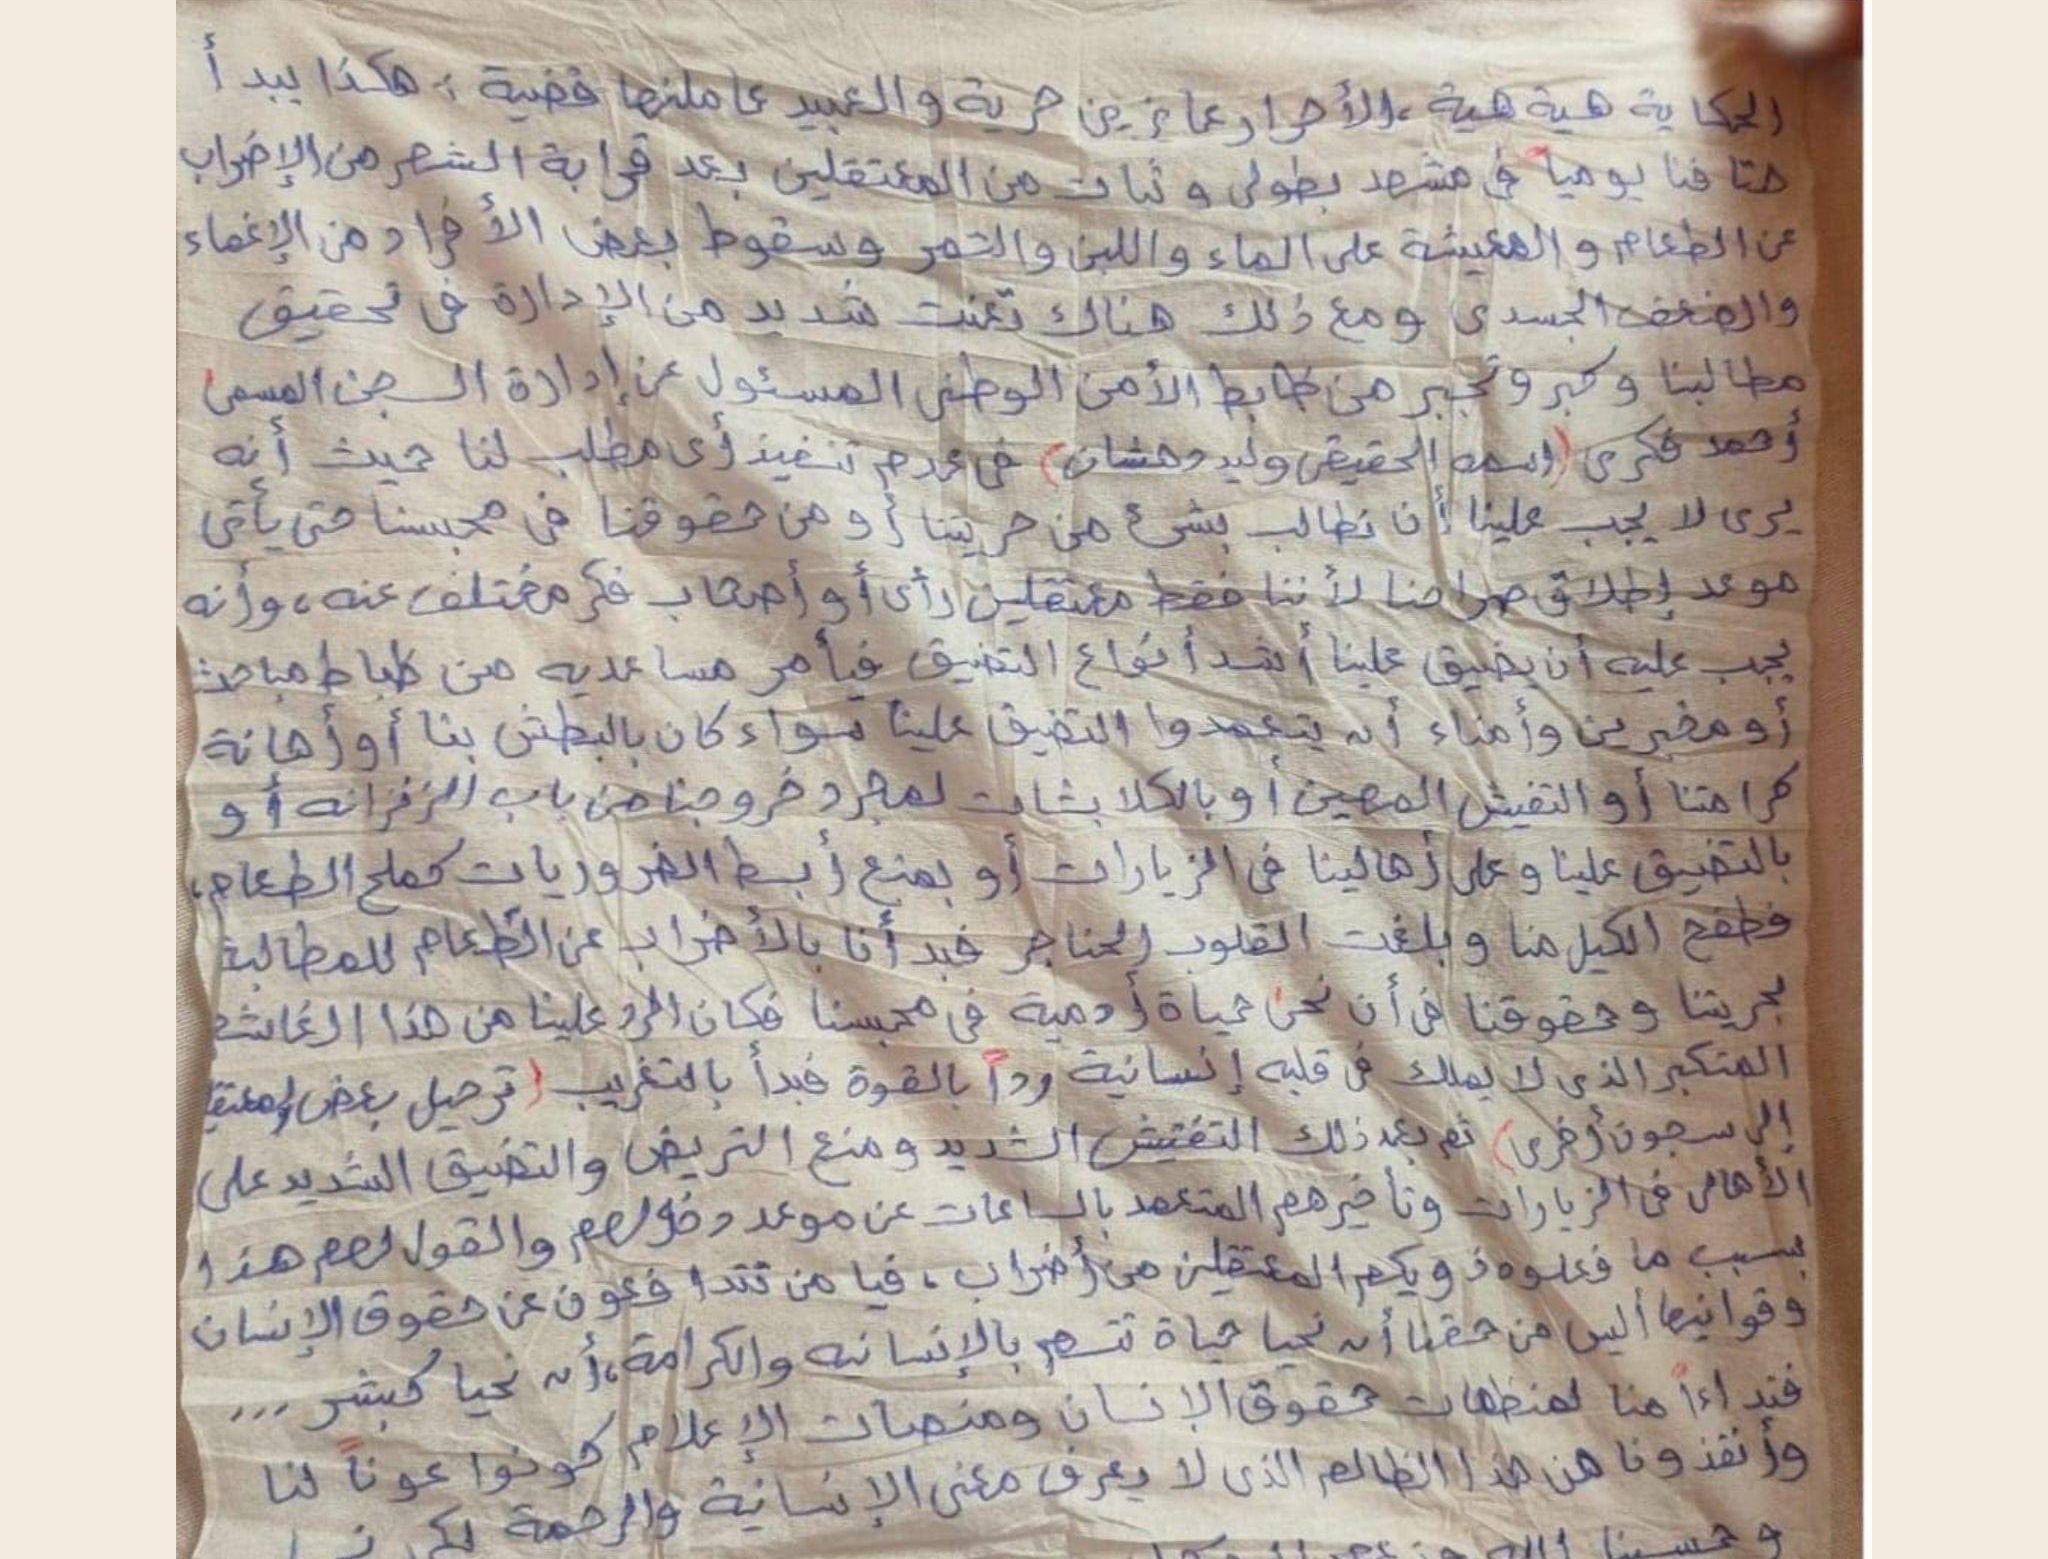 الحكاية هية هية ، الأحرار عايزين حرية والعبيد عاملنها قضية ؛ هكذا يبدأ
هتافنا يومياً في مشهد بطولى وثبات من المعتقلين بعد قرابة الشهر من الإضراب
عن الطعام والمعيشة على الماء واللبن والتمر وسقوط بعض الأفراد من الإغماء
والضعف الجسدى ومع ذلك هناك تعنت شديد من الإدارة فى تحقيق
مطالبنا وكبر وتجبر من ظابط الأمن الوطنى المسئول عن إدارة السجن المسمى
أحمد فكرى (اسمه الحقيقى وليد دهشان) فى عدم تنفيذ أى مطلب لنا حيث أنه
يرى لا يجب علينا أن نطالب بشئ من حريتنا أو من حقوقنا فى محبسنا حتى يأتى
موعد إطلاق صراحنا لأننا فقط معتقلين رأى أو أصحاب فكر مختلف عنه ، وأنه
يجب عليه أن يضيق علينا أشد أنواع التضيق فيأمر مساعديه من ظباط مباحث
أو مخبرين وأمناء أن يتعمدوا التضيق علينا سواء كان بالبطش بنا أو أهانة
كرامتنا أو التفيش المهين أو بالكلابشات لمجرد خروجنا من باب الزنزانه أو
بالتضيق علينا وعلى أهالينا فى الزيارات أو بمنع أبسط الضروريات كملح الطعام ،
فطفح الكيل منا وبلغت القلوب الحناجر فبدأنا بالأضراب عن الطعام للمطالبة
بحريتنا وحقوقنا فى أن نحى حياة أدمية فى محبسنا فكان الرد علينا من هذا الغاشم
المتكبر الذى لا يملك فى قلبه إنسانية رداً بالقوة فبدأ بالتغريب (ترحيل بعض
إلى سجون أخرى) ثم بعد ذلك التفتيش الشديد ومنع التريض والتضيق الشديد على
الأهالى فى الزيارات وتأخيرهم المتعمد بالساعات عن موعد دخولهم والقول لهم هذا
بسبب ما فعلوه ذويكم المعتقلين من أضراب ، فيا من تتدافعون عن حقوق الإنسان
وقوانيها أليس من حقنا أن نحيا حياة تتسم بالإنسانه والكرامة ، أن نحيا كبشر ...
فنداءاً منا لمنظمات حقوق الإنسان ومنصات الإعلام كونوا عوناً لنا
وأنقذونا من هذا الظالم الذى لا يعرف معنى الإنسانية والرحمة
وحسبنا الله ونعم الوكيل